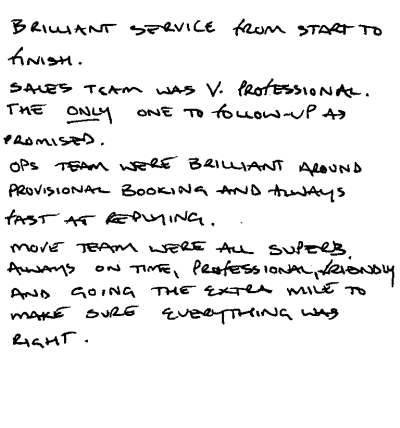 BRILLIANT SERVICE FROM START TO
FINISH.
SALES TEAM WAS V. PROFESSIONAL.
THE ONLY ONE TO FOLLOW-UP AS
PROMISED.
OPS TEAM WERE BRILLIANT AROUND
PROVISIONAL BOOKING AND ALWAYS
FAST AT REPLYING.
MOVE TEAM WERE ALL SUPERB.
ALWAYS ON TIME, PROFESSIONAL, FRIENDLY
AND GOING THE EXTRA MILE TO
MAKE SURE EVERYTHING WAS
RIGHT.